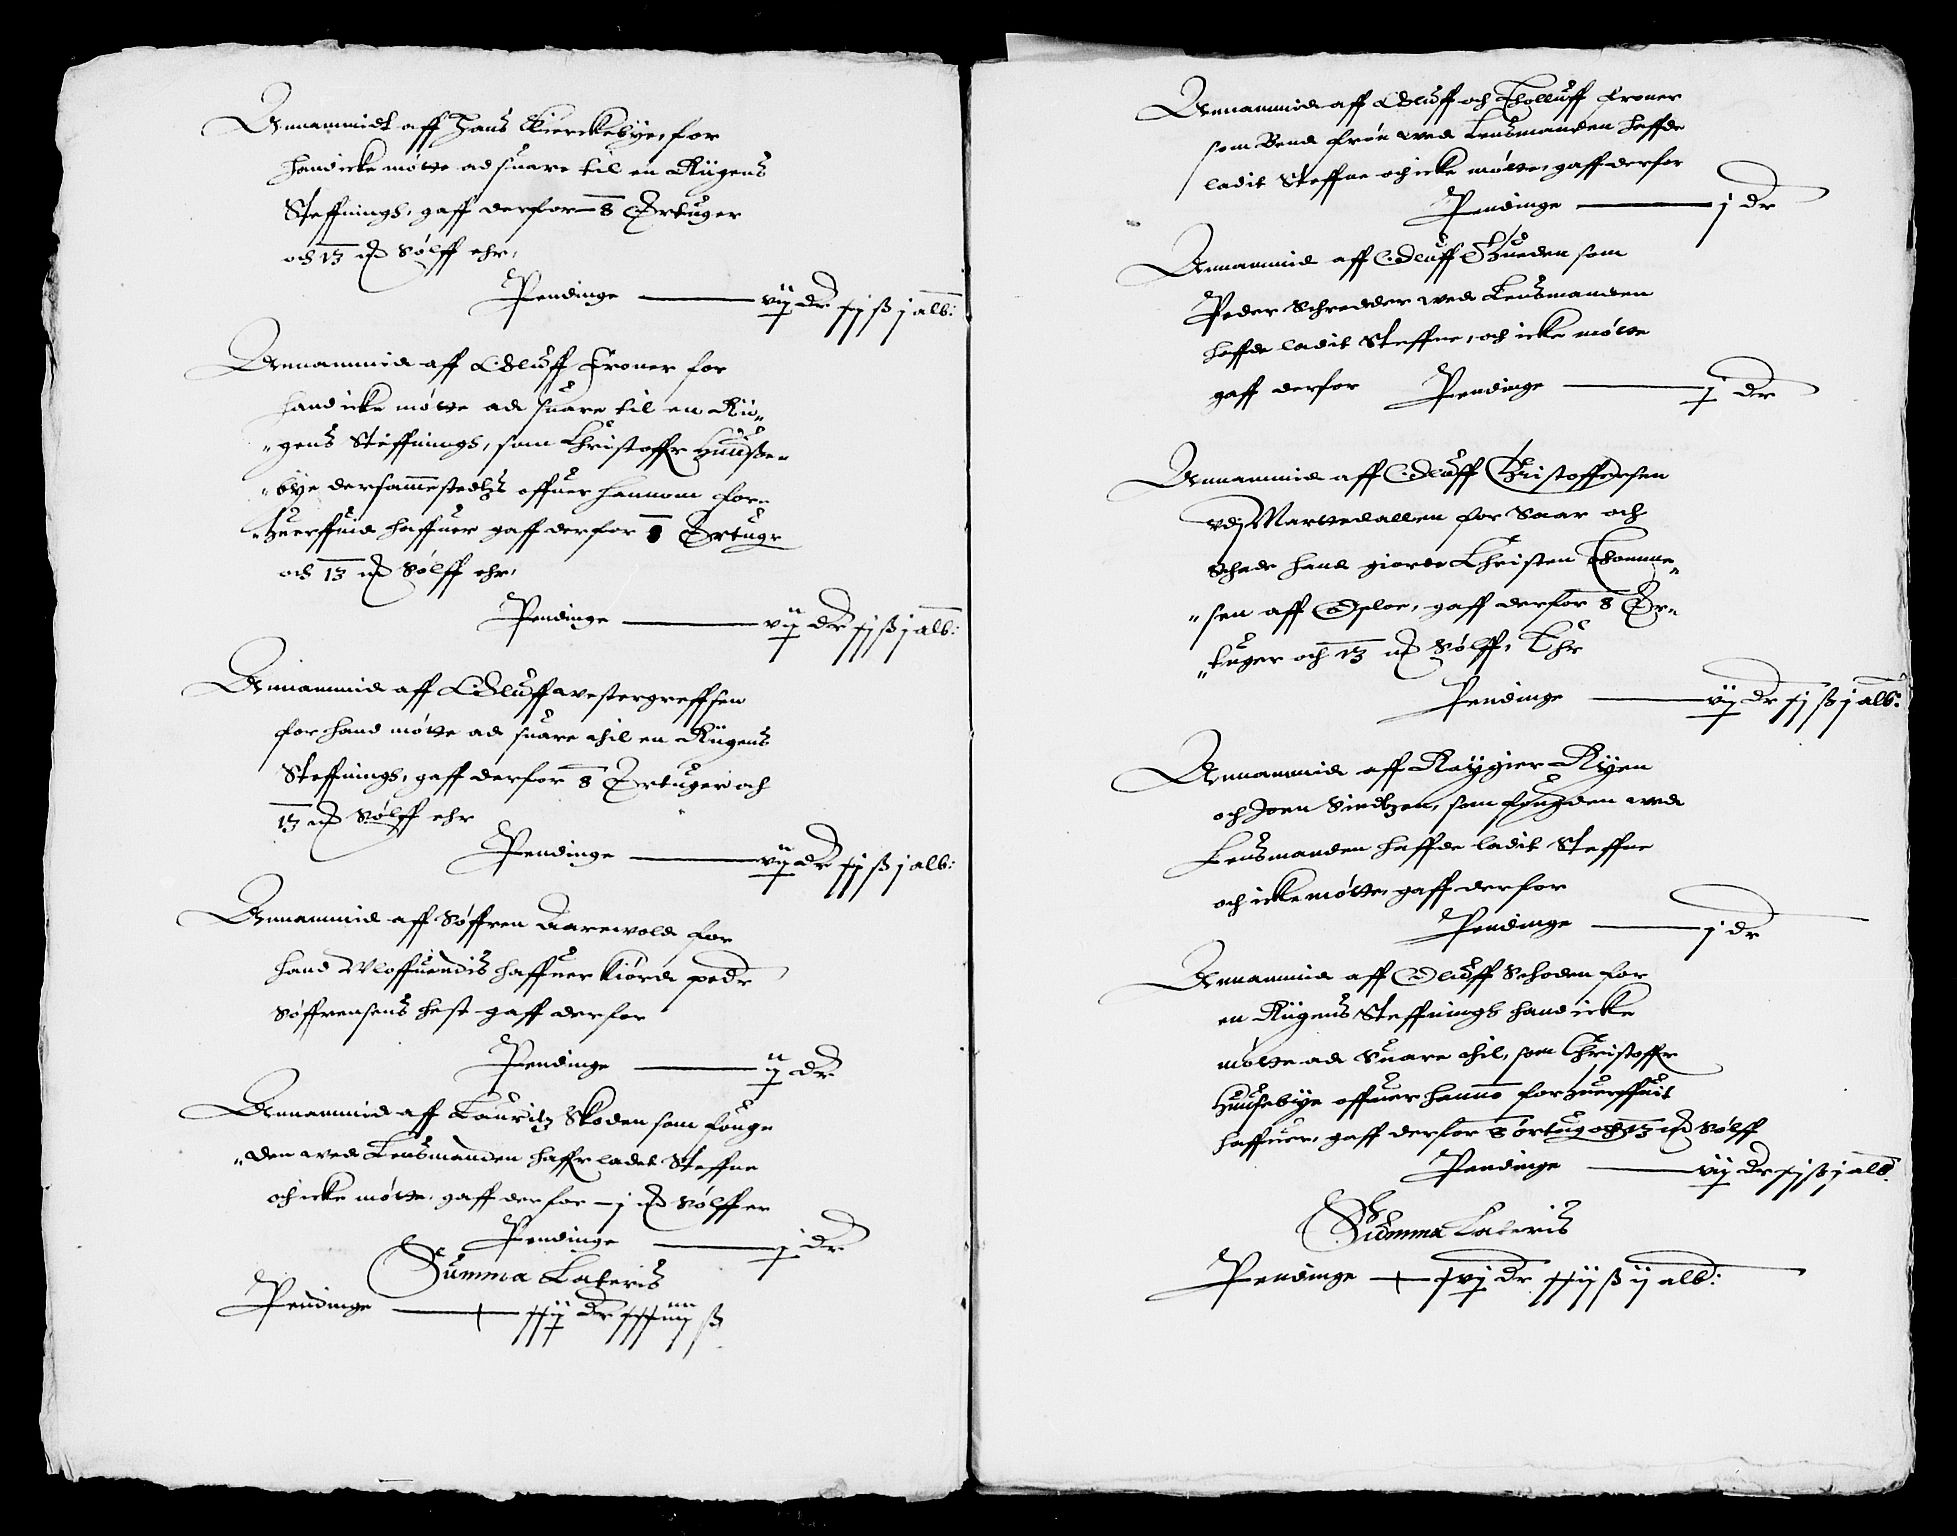 Annammidt aff Hans Kierckebye, for
hand icke møtte ad suare til en Rügens
Steffnings, gaff derfor 8 Ørtuger
och 13 Sølff ehr,
Pendinge vij dr xj ß j alb:
Annammid aff Oluff Froner for
hand icke møtte ad suare til en Rü„
„gens Steffnings, som Christoffr Huuße„
„bye dersammestedtz offuer hannom for„
„huerffuid haffuer gaff derfor 8 Ørtugr
och 13 Sølff ehr,
Pendinge vij dr xj ß j alb:
Annammid aff Oluff westergreffsen
for hand møtte ad suare thil en Rügens
Steffnings, gaff derfor 8 Ørtuger och
13 Sølff ehr
Pendinge vij dr xj ß j alb:
Annammid aff Søffren Aarewold for
hand Wloffuendis haffuer kiørd pedr
Søffrensens hest gaff derfor
Pendinge ij dr
Annammid aff Lauritz Skoden som fouge
„den wed Lensmanden haffr ladet Steffne
och icke møtte, gaff derfor j Sølff er
Pendinge j dr
Summa Lateris
Pendinge xxij dr xxxiiij ß
Annammid aff Oluff och Tholluff Froner
som Bend frøn wed Lensmanden haffde
ladit Steffne och icke møtte, gaff derfor
Pendinge j dr
Annammid aff Oluff Hueden som
Peder Schredder wed Lensmanden
haffde ladit Steffne, och icke møtte
gaff derfor Pendinge j dr
Annammid aff Oluff Christoffersen
vdj Marttedallen for Saar och
Schade hand giorde Christen Thomme„
„sen aff Opsloe, gaff derfor 8 Ør„
„tuger och 13 Sølff, Ehr
Pendinge vij dr xj ß j alb:
Annammid aff Reygier Ryen
och Joen Sindtzen, som fougden wed
Lensmanden haffde ladit Steffne
och icke møtte, gaff derfor
Pendinge j dr
Annammid aff Oluff Schoden for
en Rügens Steffnings hand icke
møtte ad Suare thil, som Christoffr
Huusebÿe offuer hanno forhuerffuit
haffuer, gaff derfor 8 ørtug och 13 Sølff
Pendinge vij dr xj ß j alb
Summa Lateris
Pendinge xvij dr xxij ß ij alb: